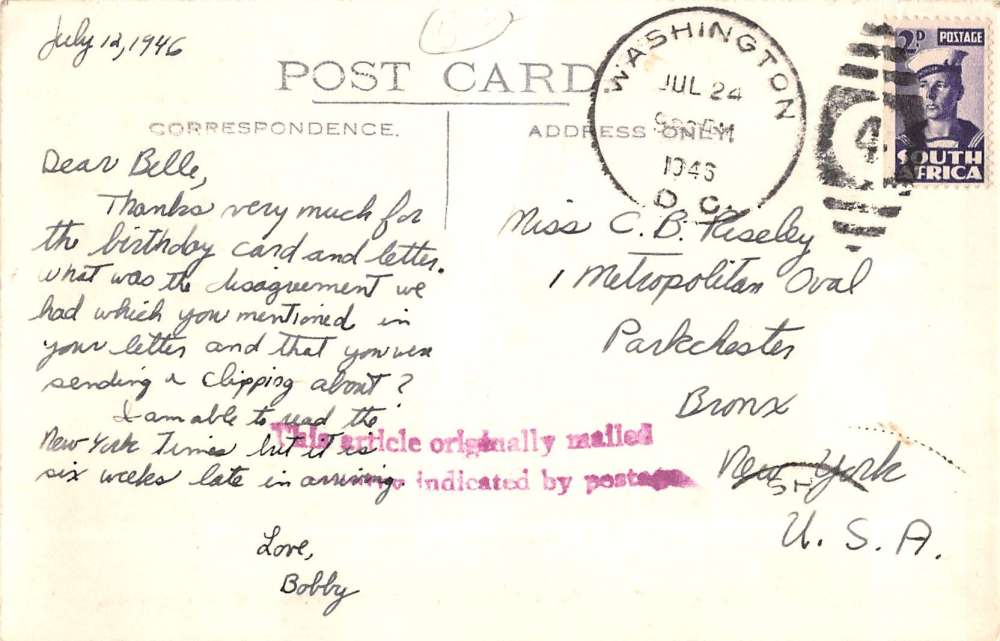 July 12, 1946
POST CARD
CORRESPONDENCE.
ADDRESS ONLY.
WASHINGTON
JUL 24
1946
D. C.
4
2D POSTAGE
SOUTH
AFRICA
Dear Belle,
Thanks very much for
the birthday card and letter.
What was the disagreement we
had which you mentioned in
your letter and that you were
sending a clipping about?
I am able to read the
New York Times but it is
six weeks late in arriving.
Love,
Bobby
Miss C. B. Riseley
1 Metropolitan Oval
Parkchester
Bronx
New York
U. S. A.
This article originally mailed
indicated by postage